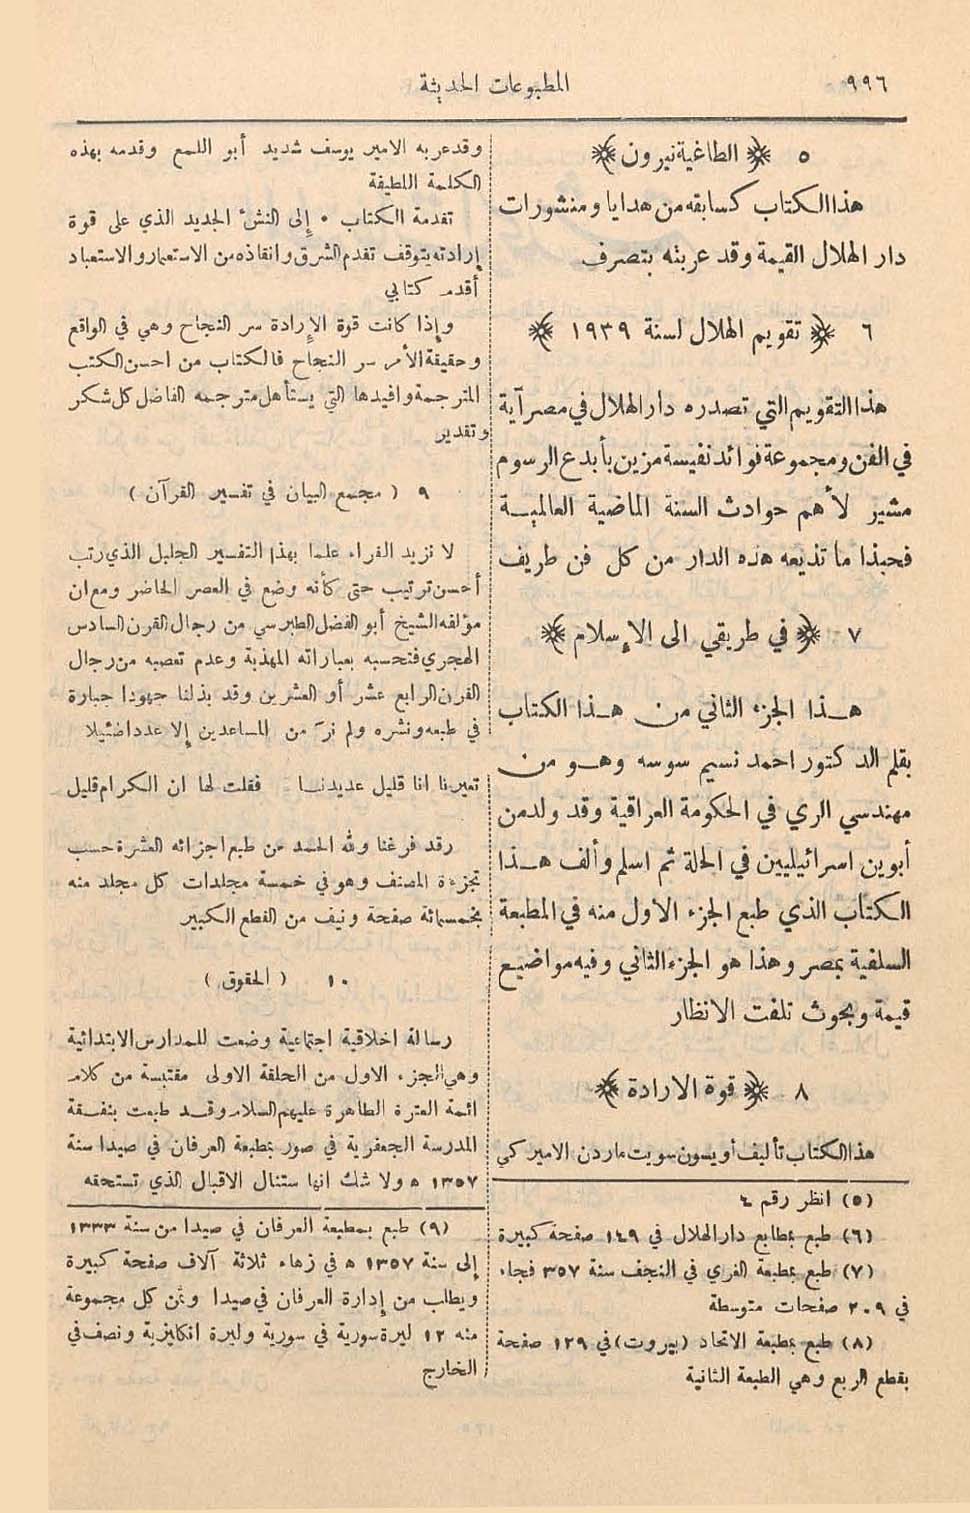 ٩٩٦
المطبوعات الحديثة
٥ ﴿ الطاغية نيرون ﴾
هذا الكتاب كسابقه من هدايا ومنشورات
دار الهلال القيمة وقد عربته بتصرف
٦ ﴿ تقويم الهلال لسنة ١٩٣٩ ﴾
هذا التقويم التي تصدره دار الهلال في مصر آية
في الفن ومجموعة فوائد نفيسة مزين بأبدع الرسوم
مشير لأهم حوادث السنة الماضية العالمية
فحبذا ما تذيعه هذه الدار من كل فن طريف
٧ ﴿ في طريقي الى الإسلام ﴾
هذا الجزء الثاني من هذا الكتاب
بقلم الدكتور احمد نسيم سوسه وهو من
مهندسي الري في الحكومة العراقية وقد ولد من
أبوين اسرائيليين في الحلة ثم اسلم وألف هذا
الكتاب الذي طبع الجزء الاول منه في المطبعة
السلفية بمصر وهذا هو الجزء الثاني وفيه مواضيع
قيمة وبحوث تلفت الانظار
٨ ﴿ قوة الارادة ﴾
هذا الكتاب تأليف أويسون سويت ماردن الاميركي
(٥) انظر رقم ٤
(٦) طبع بمطابع دار الهلال في ١٤٩ صفحة كبيرة
(٧) طبع بمطبعة الغري في النجف سنة ٣٥٧ فجاء
في ٢٠٩ صفحات متوسطة
(٨) طبع بمطبعة الاتحاد (بيروت) في ١٢٩ صفحة
بقطع الربع وهي الطبعة الثانية
وقد عربه الامير يوسف شديد أبو اللمع وقدمه بهذه
الكلمة اللطيفة
تقدمة الكتاب • إلى النشئ الجديد الذي على قوة
إرادته يتوقف تقدم الشرق وانقاذه من الاستعمار والاستعباد
أقدم كتابي
وإذا كانت قوة الإرادة سر النجاح وهي في الواقع
وحقيقة الأمر سر النجاح فالكتاب من احسن الكتب
المترجمة وافيدها التي يستأهل مترجمه الفاضل كل شكر
وتقدير
٩ ( مجمع البيان في تفسير القرآن )
لا نزيد القراء علما بهذا التفسير الجليل الذي رتب
أحسن ترتيب حتى كأنه وضع في العصر الحاضر ومع ان
مؤلفه الشيخ أبو الفضل الطبرسي من رجال القرن السادس
الهجري فتحسبه بعباراته المهذبة وعدم تعصبه من رجال
القرن الرابع عشر أو العشرين وقد بذلنا جهودا جبارة
في طبعه ونشره ولم نر من المساعدين إلا عددا ضئيلا
تعيرنا انا قليل عديدنا فقلت لها ان الكرام قليل
رقد فرغنا ولله الحمد من طبع اجزائه العشرة حسب
تجزءة المصنف وهو في خمسة مجلدات كل مجلد منه
بخمسمائة صفحة ونيف من القطع الكبير
١٠ ( الحقوق )
رسالة اخلاقية اجتماعية وضعت للمدارس الابتدائية
وهي الجزء الاول من الحلقة الاولى مقتبسة من كلام
ائمة العترة الطاهرة عليهم السلام وقد طبعت بنفقة
المدرسة الجعفرية في صور بمطبعة العرفان في صيدا سنة
١٣٥٧ ه ولا شك انها ستنال الاقبال الذي تستحقه
(٩) طبع بمطبعة العرفان في صيدا من سنة ١٣٣٣
إلى سنة ١٣٥٧ ه في زهاء ثلاثة آلاف صفحة كبيرة
ويطلب من إدارة العرفان في صيدا وثمن كل مجموعة
منه ١٢ ليرة سورية في سورية وليرة انكليزية ونصف في
الخارج